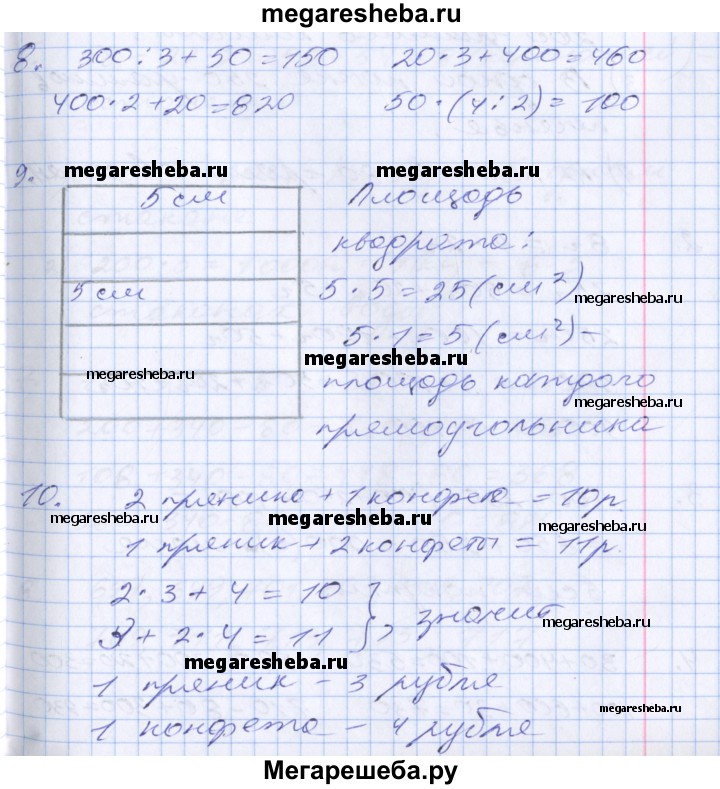 megaresheba.ru
8. 300 : 3 + 50 = 150 20 · 3 + 400 = 460
400 · 2 + 20 = 820 50 · (4 : 2) = 100
megaresheba.ru megaresheba.ru
9. 5 см Площадь
квадрата:
5 см 5 · 5 = 25 (см²)
megaresheba.ru
5 · 1 = 5 (см²) –
megaresheba.ru
megaresheba.ru площадь каждого
megaresheba.ru
прямоугольника
10. 2 пряника + 1 конфета = 10 р.
megaresheba.ru megaresheba.ru megaresheba.ru
1 пряник + 2 конфеты = 11 р.
2 · 3 + 4 = 10
3 + 2 · 4 = 11 }, значит
megaresheba.ru
megaresheba.ru
1 пряник – 3 рубля
megaresheba.ru
1 конфета – 4 рубля
Мегарешеба.ру